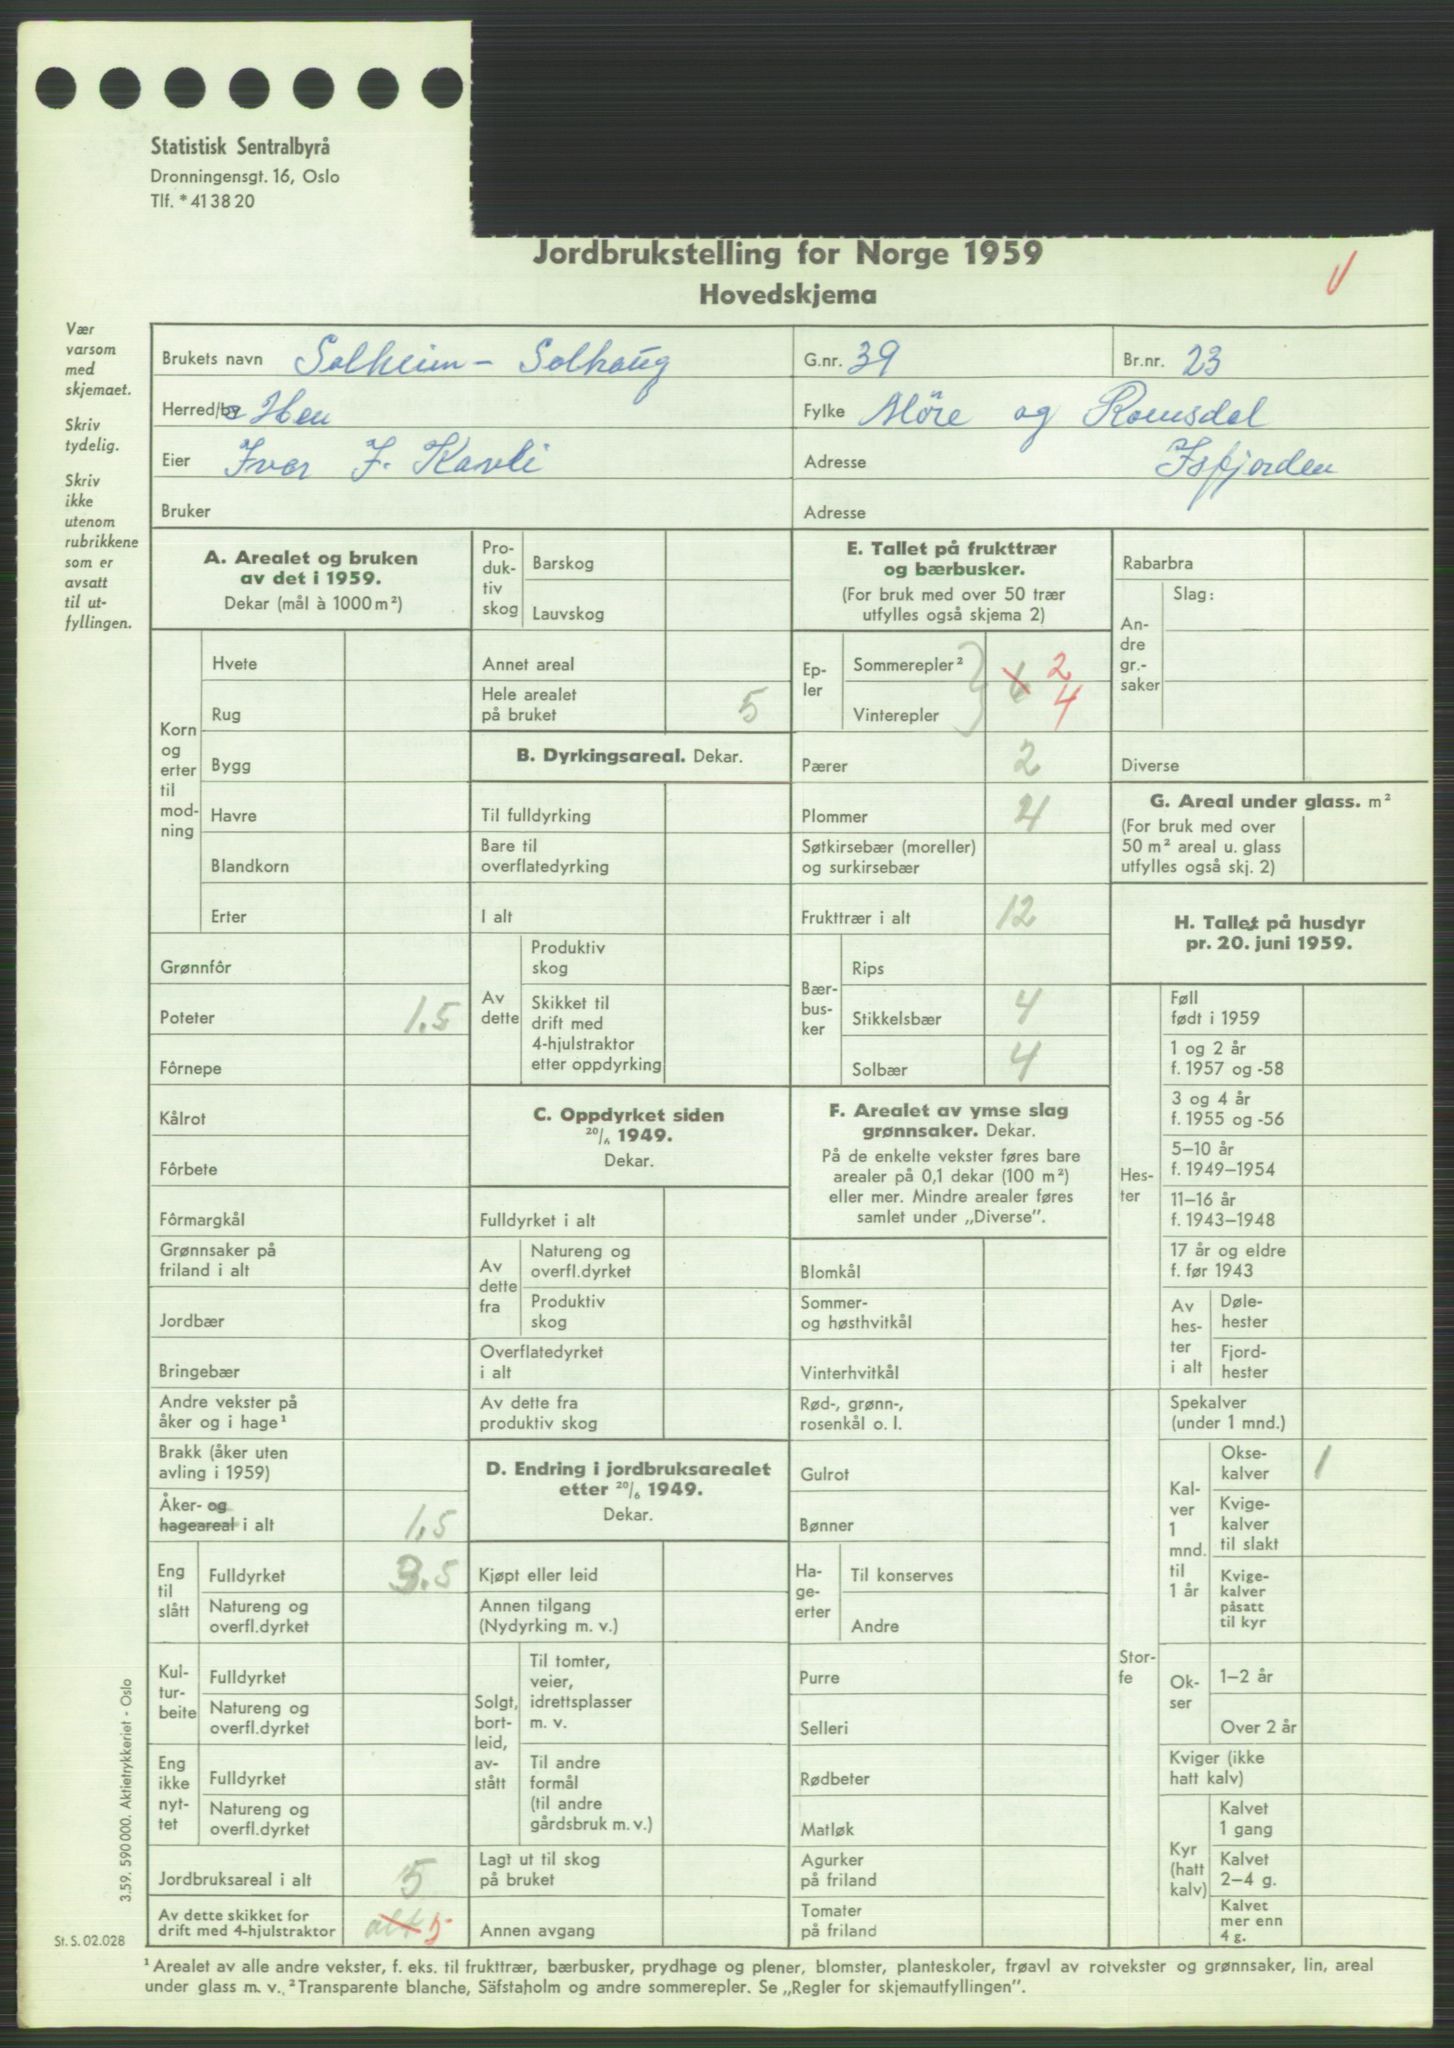 Statistisk Sentralbyrå
Dronningensgt. 16, Oslo
Tlf. * 41 38 20
Jordbrukstelling for Norge 1959
Hovedskjema
V
Vær
varsom
med
skjemaet.
Skriv
tydelig.
Skriv
ikke
utenom
rubrikkene
som er
avsatt
til ut-
fyllingen.
Brukets navn Solheim - Solhaug G.nr. 39 Br.nr. 23
Herred/by Hen Fylke Möre og Romsdal
Eier Iver J. Kavli Adresse Isfjorden
Bruker Adresse
A. Arealet og bruken
av det i 1959.
Dekar (mål à 1000 m²)
Korn
og
erter
til
mod-
ning
Hvete
Rug
Bygg
Havre
Blandkorn
Erter
Grønnfôr
Poteter 1.5
Fôrnepe
Kålrot
Fôrbete
Fôrmargkål
Grønnsaker på
friland i alt
Jordbær
Bringebær
Andre vekster på
åker og i hage¹
Brakk (åker uten
avling i 1959)
Åker- og
hageareal i alt 1.5
Eng
til
slått
Fulldyrket 3.5
Natureng og
overfl.dyrket
Kul-
tur-
beite
Fulldyrket
Natureng og
overfl.dyrket
Eng
ikke
nyt-
tet
Fulldyrket
Natureng og
overfl.dyrket
Jordbruksareal i alt 5
Av dette skikket for
drift med 4-hjulstraktor alt 5
Pro-
duk-
tiv
skog
Barskog
Lauvskog
Annet areal
Hele arealet
på bruket 5
B. Dyrkingsareal. Dekar.
Til fulldyrking
Bare til
overflatedyrking
I alt
Av
dette
Produktiv
skog
Skikket til
drift med
4-hjulstraktor
etter oppdyrking
C. Oppdyrket siden
20/6 1949.
Dekar.
Fulldyrket i alt
Av
dette
fra
Natureng og
overfl.dyrket
Produktiv
skog
Overflatedyrket
i alt
Av dette fra
produktiv skog
D. Endring i jordbruksarealet
etter 20/6 1949.
Dekar.
Kjøpt eller leid
Annen tilgang
(Nydyrking m. v.)
Solgt,
bort-
leid,
av-
stått
Til tomter,
veier,
idrettsplasser
m. v.
Til andre
formål
(til andre
gårdsbruk m. v.)
Lagt ut til skog
på bruket
Annen avgang
E. Tallet på frukttrær
og bærbusker.
(For bruk med over 50 trær
utfylles også skjema 2)
Ep-
ler
Sommerepler² 2
6
Vinterepler 4
Pærer 2
Plommer 4
Søtkirsebær (moreller)
og surkirsebær
Frukttrær i alt 12
Bær-
bus-
ker
Rips
Stikkelsbær 4
Solbær 4
F. Arealet av ymse slag
grønnsaker. Dekar.
På de enkelte vekster føres bare
arealer på 0,1 dekar (100 m²)
eller mer. Mindre arealer føres
samlet under „Diverse”.
Blomkål
Sommer-
og høsthvitkål
Vinterhvitkål
Rød-, grønn-,
rosenkål o. l.
Gulrot
Bønner
Ha-
ge-
erter
Til konserves
Andre
Purre
Selleri
Rødbeter
Matløk
Agurker
på friland
Tomater
på friland
Rabarbra
An-
dre
gr.-
saker
Slag:
Diverse
G. Areal under glass. m²
(For bruk med over
50 m² areal u. glass
utfylles også skj. 2)
H. Tallet på husdyr
pr. 20. juni 1959.
Hes-
ter
Føll
født i 1959
1 og 2 år
f. 1957 og -58
3 og 4 år
f. 1955 og -56
5–10 år
f. 1949–1954
11–16 år
f. 1943–1948
17 år og eldre
f. før 1943
Av
hes-
ter
i alt
Døle-
hester
Fjord-
hester
Stor-
fe
Spekalver
(under 1 mnd.)
Kal-
ver
1
mnd.
til
1 år
Okse-
kalver 1
Kvige-
kalver
til slakt
Kvige-
kalver
påsatt
til kyr
Ok-
ser
1–2 år
Over 2 år
Kviger (ikke
hatt kalv)
Kyr
(hatt
kalv)
Kalvet
1 gang
Kalvet
2–4 g.
Kalvet
mer enn
4 g.
3.59. 590 000. Aktietrykkeriet - Oslo
St. S. 02.028
¹ Arealet av alle andre vekster, f. eks. til frukttrær, bærbusker, prydhage og plener, blomster, planteskoler, frøavl av rotvekster og grønnsaker, lin, areal
under glass m. v. ² Transparente blanche, Säfstaholm og andre sommerepler. Se „Regler for skjemautfyllingen”.